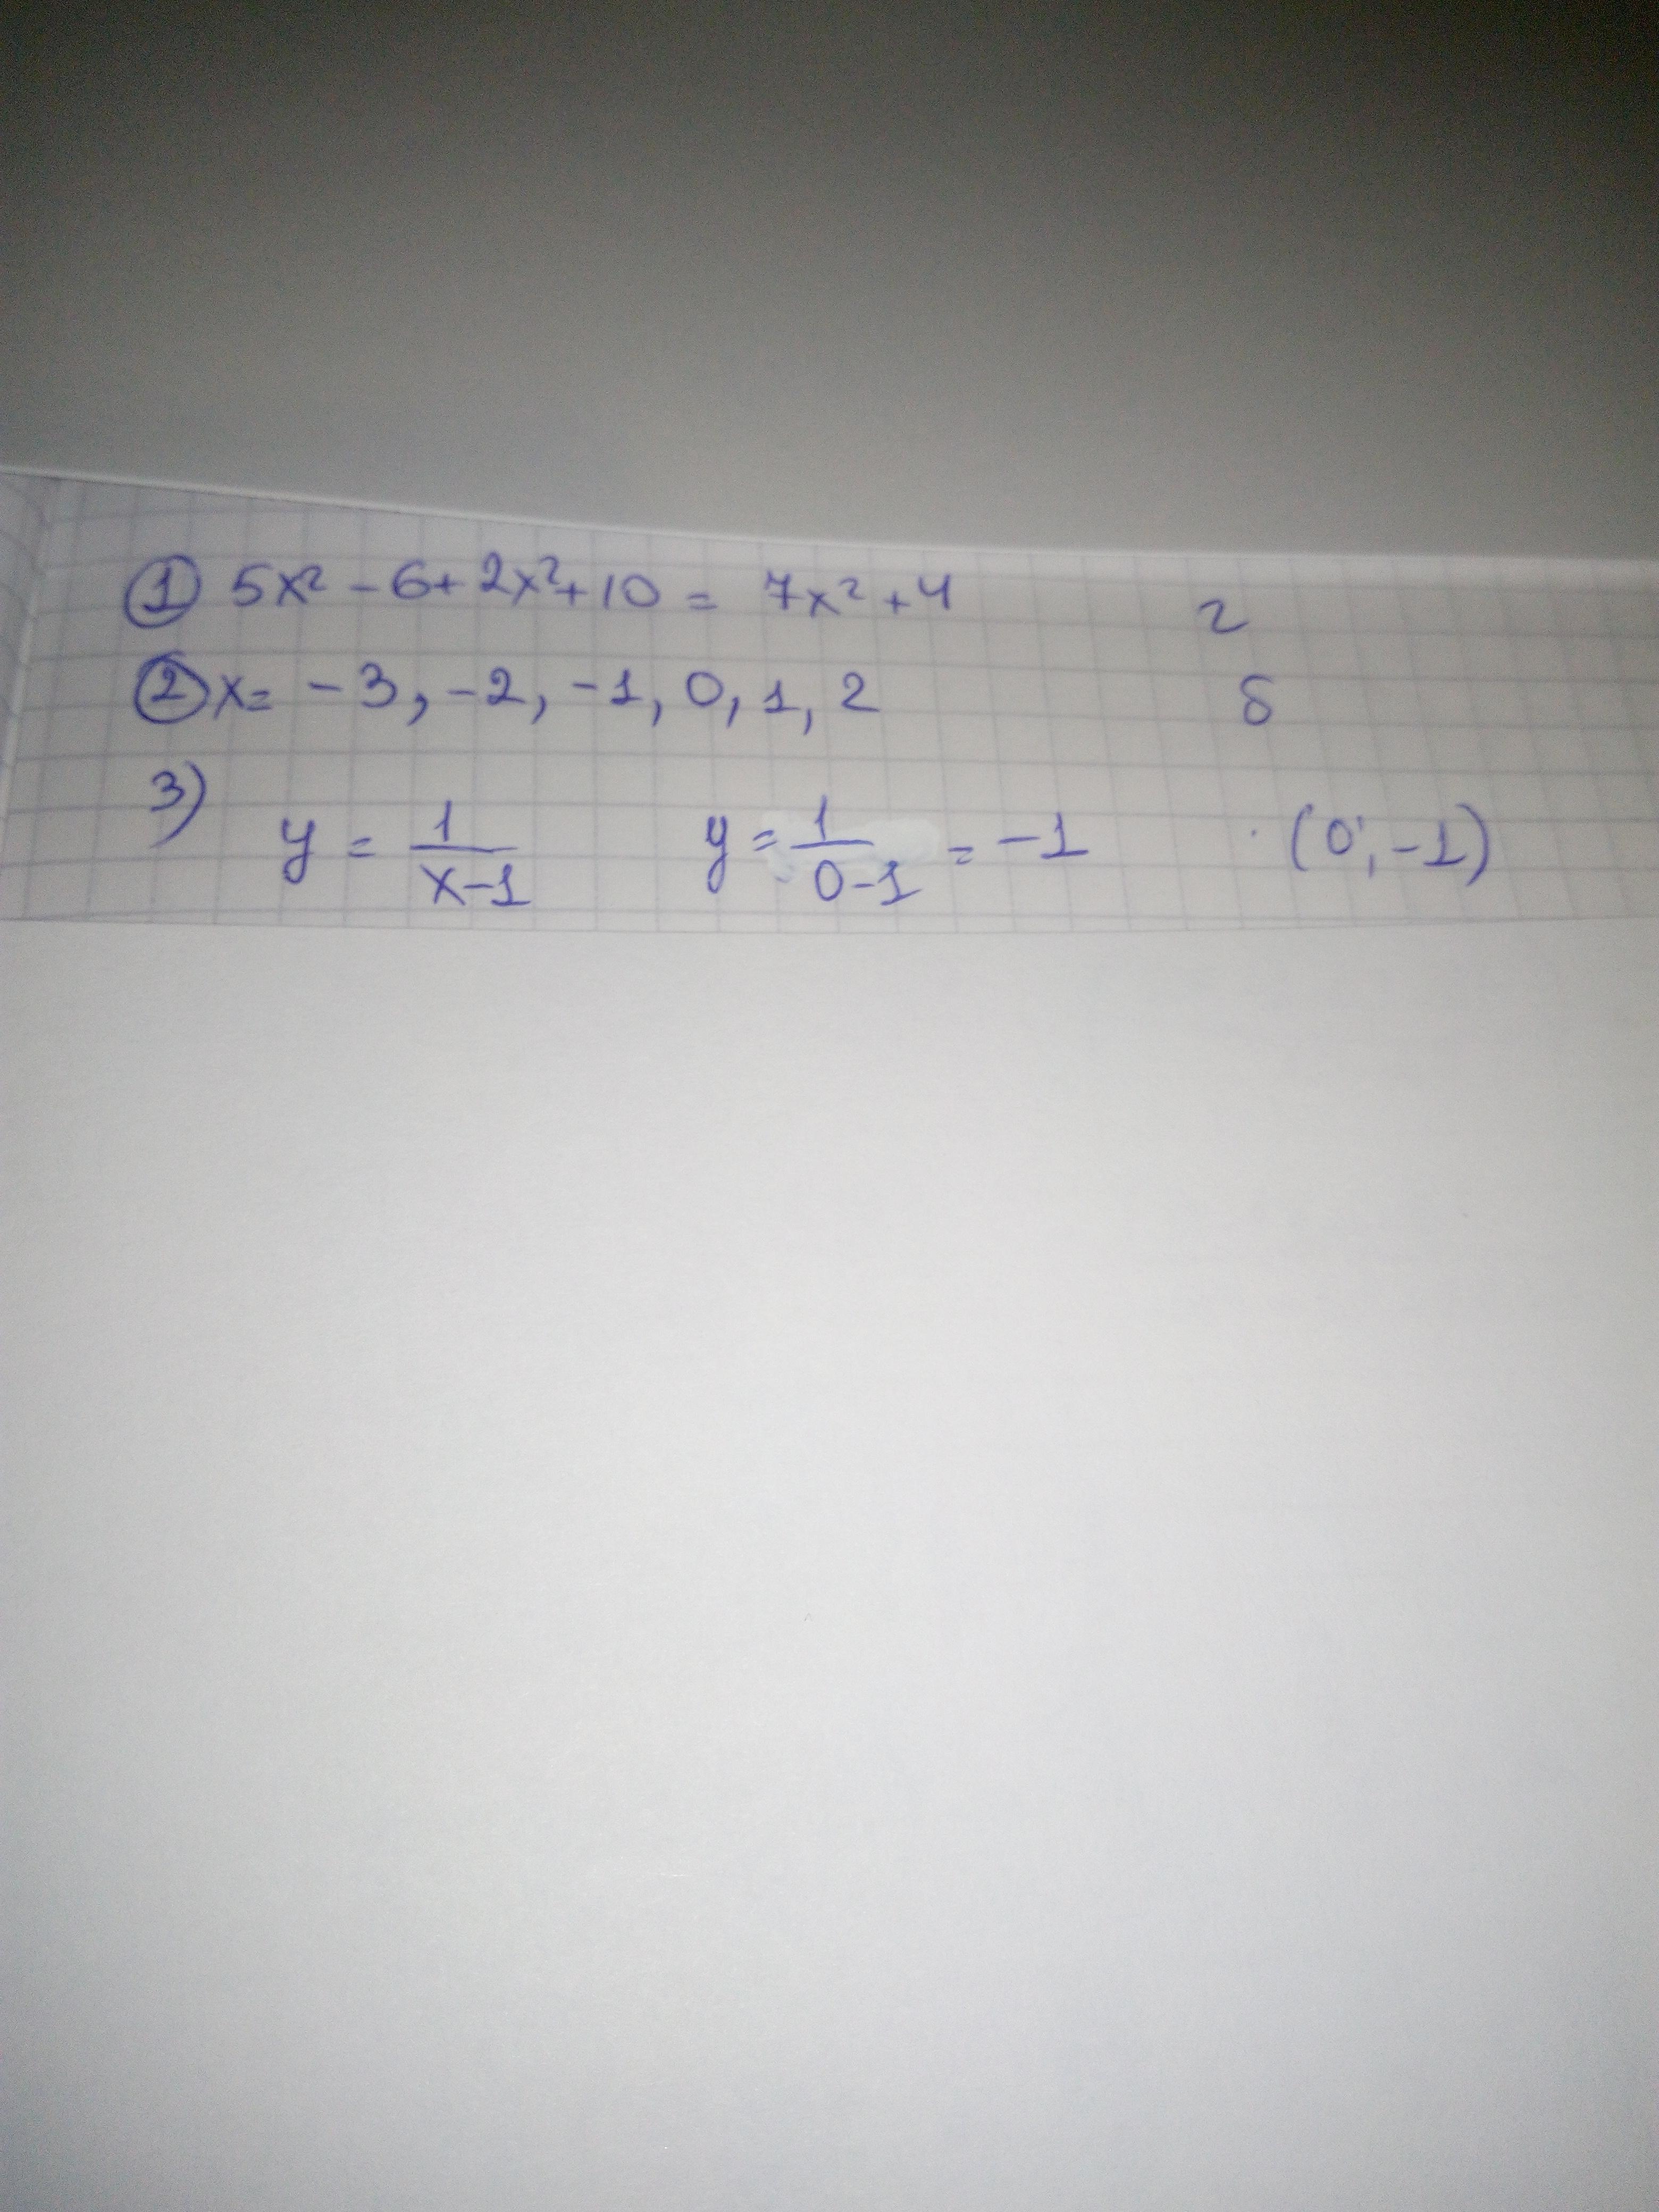 ① 5x² - 6 + 2x² + 10 = 7x² + 4 г
② x = -3, -2, -1, 0, 1, 2 б
3) y = 1/(x-1) y = 1/(0-1) = -1 (0; -1)